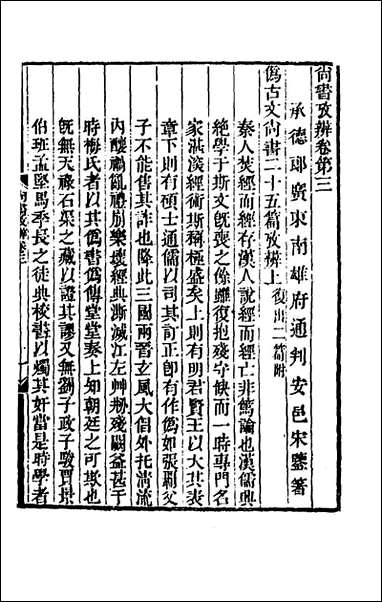 尚書攷辨卷第三
承德郎廣東南雄府通判安邑宋鑒著
僞古文尚書二十五篇攷辨上復出二篇附
秦人焚經而經存漢人說經而經亡非篤論也漢儒興
絕學于斯文旣喪之餘雖復抱殘守缺而一時專門名
家湛深經術斯稱極盛矣上則有明君賢王以大其表
章下則有碩士通儒以司其訂正卽有作僞如張霸父
子不能售其詐也降此三國兩晉玄風大倡外托淸流
內釀禍亂禮崩樂壞經典漸滅江左艸刱殘闕益甚于
時梅氏者以其僞書僞傳堂堂奏上知朝廷之可欺也
旣無天祿石渠之藏以證其謬又無劉子政子駿賈景
伯班孟堅馬季長之徒典校書以燭其奸當是時學者
尚書攷辨卷三